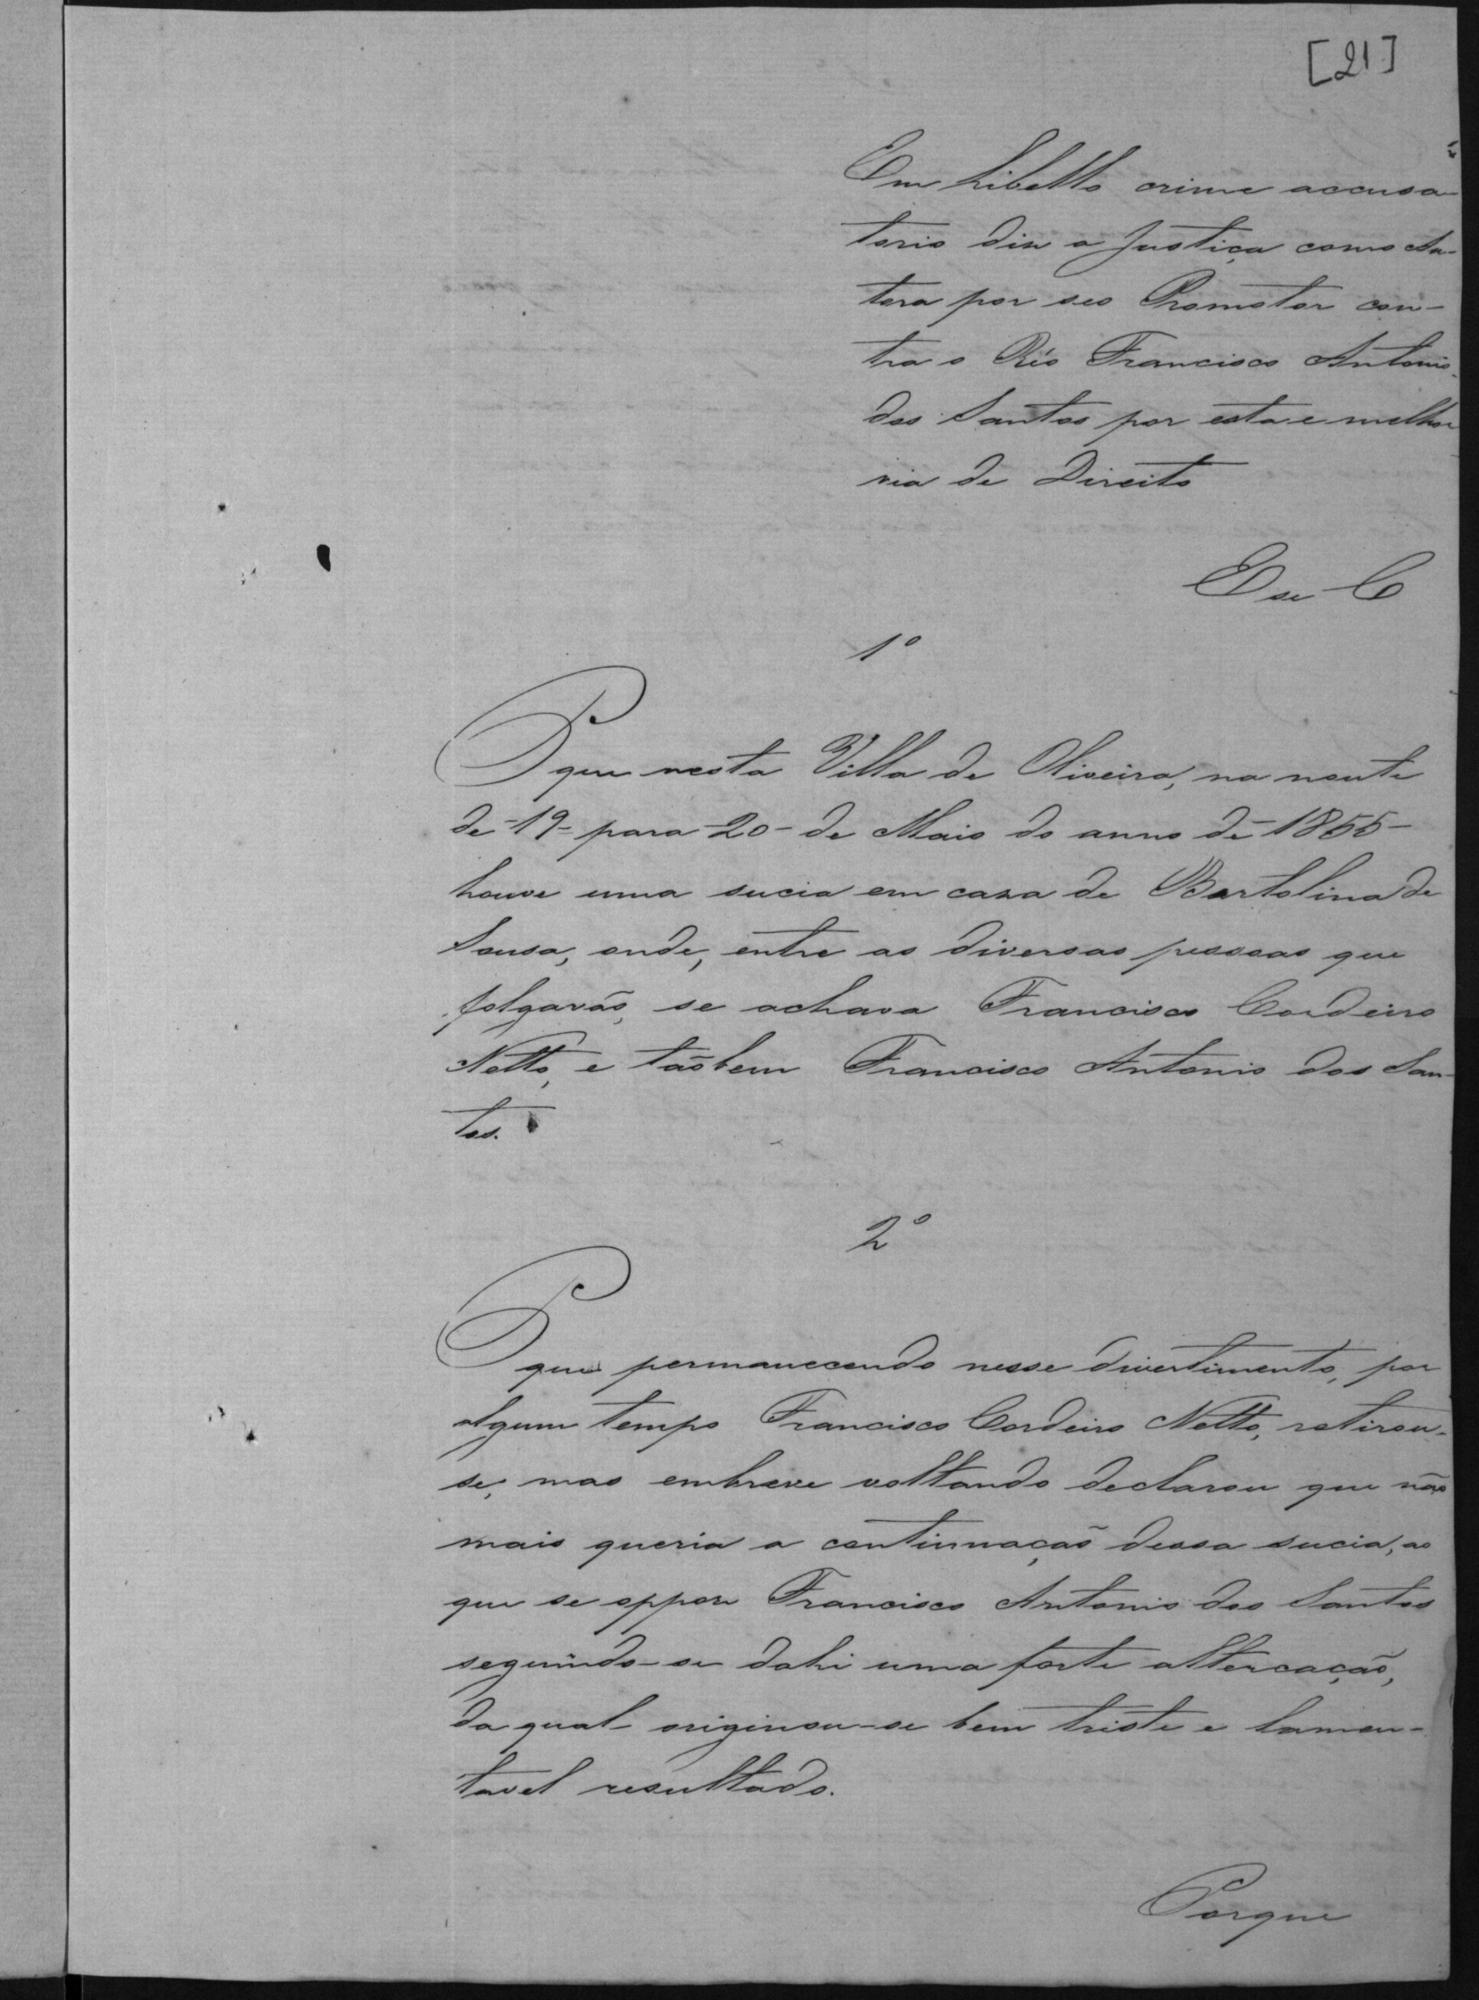 [21]
Em Libello crime accusa-
torio diz a Justiça como Au-
tora por seo Promotor con-
tra o Réo Francisco Antonio
dos Santos por esta e melhor
via de Direito
E se C
1º
P que nesta Villa de Oliveira, na noute
de -19- para -20- de Maio do anno de -1855-
houve uma sucia em caza de Bartolina de
Sousa, onde, entre as diversas pessoas que
folgavão, se achava Francisco Cordeiro
Netto, e tãobem Francisco Antonio dos San-
tos.
2º
P que permanecendo nesse divertimento, por
algum tempo Francisco Cordeiro Netto, retirou-
se, mas embreve voltando declarou que não
mais queria a continuação dessa sucia, ao
que se oppoz Francisco Antonio dos Santos
seguindo-se dahi uma forte altercação,
da qual originou-se bem triste e lamen-
tavel resultado.
Porque